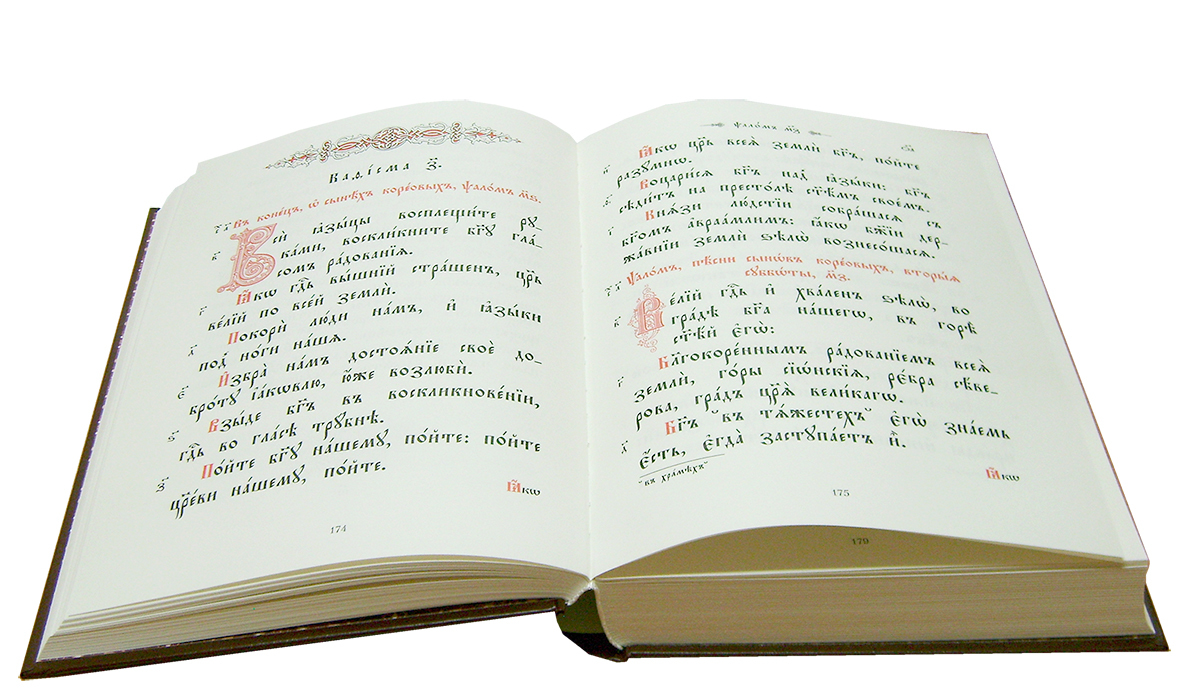 Каѳі́сма з҃.
Въ коне́цъ, ѡ҆ сынѣ́хъ коре́овыхъ, ѱало́мъ м҃ѕ.
Всѝ ꙗ҆зы́цы восплещи́те рꙋ-
ка́ми, воскли́кните бг҃ꙋ гла́-
сомъ ра́дованїѧ.
Ꙗ҆́кѡ гдⷭ҇ь вы́шнїй стра́шенъ, цр҃ь
ве́лїй по все́й землѝ.
Покорѝ лю́ди на́мъ, и҆ ꙗ҆зы́ки
под̾ но́ги на́шѧ.
И҆збра̀ на́мъ достоѧ́нїе своѐ, до-
бро́тꙋ і҆а́кѡвлю, ю҆́же возлюбѝ.
Взы́де бг҃ъ в̾ воскликнове́нїи,
гдⷭ҇ь во гла́сѣ трꙋ́бнѣ.
По́йте бг҃ꙋ на́шемꙋ, по́йте: по́йте
цр҃е́ви на́шемꙋ, по́йте.
Ꙗ҆́кѡ
174
ѱало́мъ м҃ѕ
Ꙗ҆́кѡ цр҃ь всеѧ̀ землѝ бг҃ъ, по́йте
разꙋ́мнѡ.
Воцари́сѧ бг҃ъ над̾ ꙗ҆зы́ки: бг҃ъ
сѣди́тъ на престо́лѣ ст҃ѣ́мъ свое́мъ.
Кнѧ̑зи лю́дстїи собра́шасѧ съ
бг҃омъ а҆враа́млимъ: ꙗ҆́кѡ бж҃їи дер-
жа́внїи землѝ ѕѣлѡ̀ вознесо́шасѧ.
Ѱало́мъ, пѣ́сни сынѡ́въ коре́овыхъ, вторы́ѧ
сꙋббѡ́ты, м҃з.
Ве́лїй гдⷭ҇ь и҆ хва́ленъ ѕѣлѡ̀, во
гра́дѣ бг҃а на́шегѡ, въ горѣ̀
ст҃ѣ́й є҆гѡ̀:
Благокоре́ннымъ ра́дованїемъ всеѧ̀
землѝ, го́ры сїѡ́нскїѧ, ре́бра сѣ́ве-
рова, гра́дъ цр҃ѧ̀ вели́кагѡ.
Бг҃ъ "въ тѧ́жестехъ" є҆гѡ̀ зна́емь
є҆́сть, є҆гда̀ застꙋпа́етъ и҆̀.
"въ хра́мѣхъ"
Ꙗ҆́кѡ
175
179